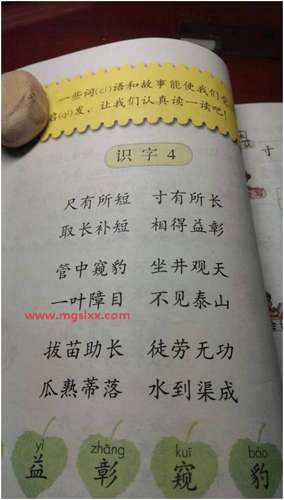 一些词(cí)语和故事能使我们受
启(qǐ)发，让我们认真读一读吧！
识字4
尺有所短 寸有所长
取长补短 相得益彰
管中窥豹 坐井观天
一叶障目 不见泰山
www.mgslxx.com
拔苗助长 徒劳无功
瓜熟蒂落 水到渠成
yì zhāng kuī bào
益 彰 窥 豹
寸